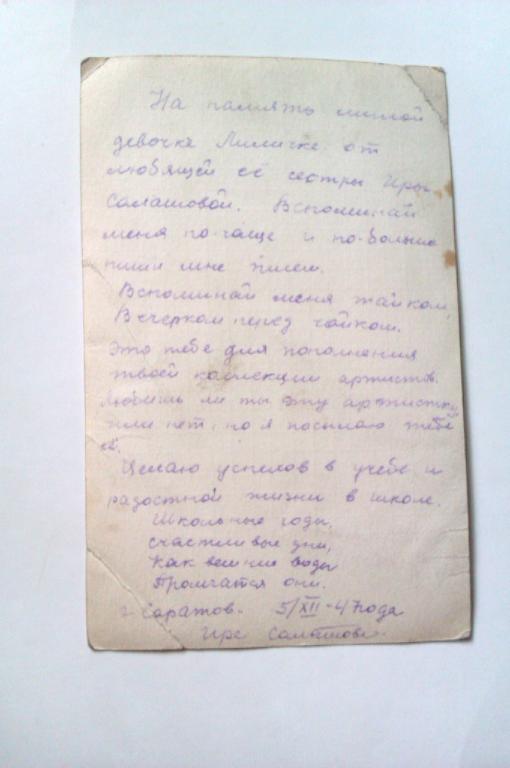 На память милой
девочке Лиличке от
любящей её сестры Иры
Салашовой. Вспоминай
меня по-чаще и по-больше
пиши мне писем.
Вспоминай меня тайком,
Вечерком перед чайком.
Это тебе для пополнения
твоей коллекции артистов.
Любишь ли ты эту артистку
или нет, но я посылаю тебе
её.
Желаю успехов в учебе и
радостной жизни в школе.
Школьные годы,
счастливые дни,
Как вешние воды
Промчатся они.
г. Саратов. 5/XII-47 года